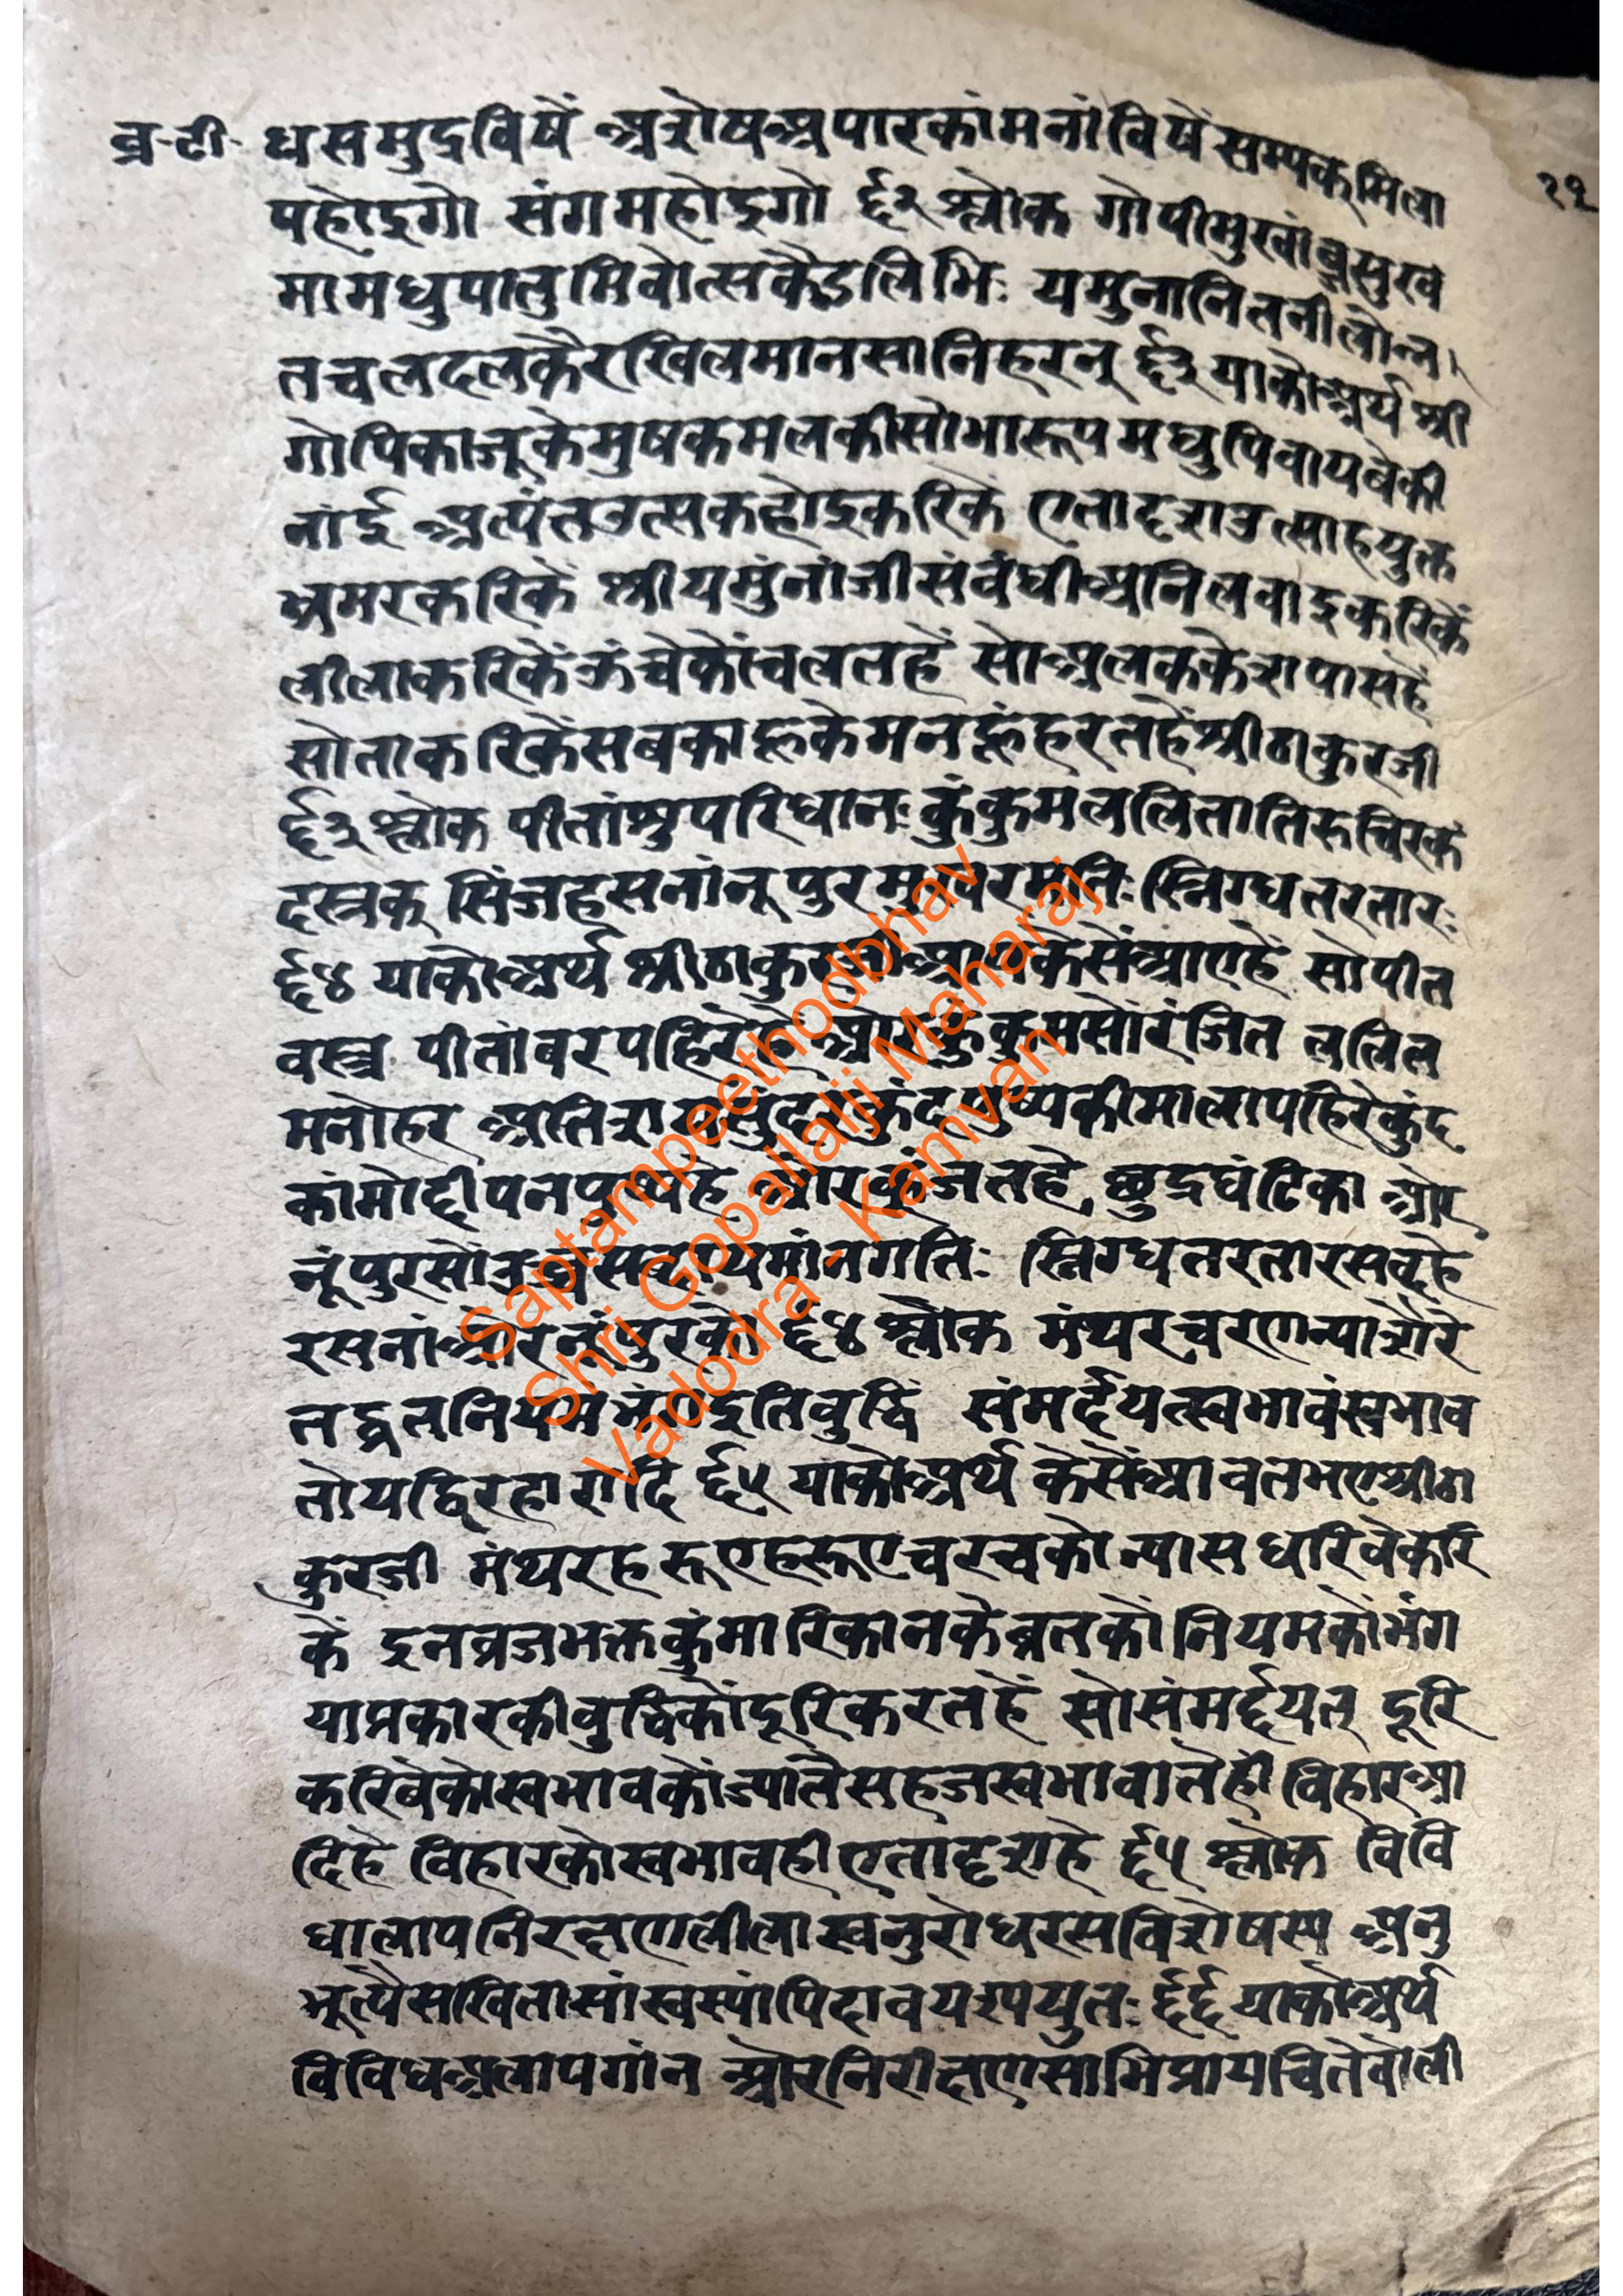 व्र-टी- धसमुद्रविषें अशेषअपारकांमनांविषेंसम्यक्मिला २१
पहोइगो संगमहोइगो ६२ श्लोक गोपीमुखांबुसुख
मामधुपातुमिवोत्सकैऽलिभिः यमुनानिलनीलोन्न
तचलदलकैरखिलमानसानिहरन् ६३ याकोअर्थ श्री
गोपिकाजूकेमुषकमलकीसोभारूपमधुपिवायवेकी
नांई अत्यंतउत्सकहोइकरिकें एतादृशउत्साहयुक्त
भ्रमरकरिकें श्रीयमुंनांजीसंवंधीअनिलवाइकरिकें
लीलाकरिकेंऊंचेकोंचलतहें सोअलककेशपासहें
सोताकरिकेंसबकाहूकेमनकूंहरतहेंश्रीठाकुरजी
६३ श्लोक पीतांशुपरिधानः कुंकुमललितातिरुचिरकं
दस्रक् सिंजहसनांनूपुरमुखरगतिः स्निग्धतरतारः
६४ याकोअर्थ श्रीठाकुरजीआपकेसेंआएहें सोपीत
वस्त्र पीतांबरपहिरेहें ओरकुंकुमसोंरंजित ललित
मनोहर अतिशयसुंदरकुंदपुष्पकीमालापहिरेकुंद
कांमोद्दीपनपुष्पहे ओरकूंजतहे छुद्रघंटिका ओर
नूंपुरसों सब्दायमांनगतिः स्निग्धतरतारसब्दहे
रसनांओरनूंपुरको ६४ श्लोक मंथरचरणन्याशैरे
तद्व्रतनियमभंगइतिवुद्धिं संमर्दयत्स्वभावंस्वभाव
तोयद्विरहाशदि ६५ याकोअर्थ केसेंआवतभएश्रीठा
कुरजी मंथरहरूएहरूएचरचकोन्यासधरिवेकरि
कें इनव्रजभक्तकुंमारिकानकेव्रतकों नियमकोंभंग
याप्रकारकीवुद्धिकोंदूरिकरतहें सोसंमर्द्दयत् दूरि
करिवेकोस्वभावकोंज्यातैसहजस्वभावातेहीं विहारआ
दिहे विहारकोस्वभावहीएतादृशहे ६५ श्लोक विवि
धालापनिरक्षणलीलास्वनुरोधरसविशेषसा अनु
भूत्यैसखितासांस्वस्यांपिहावयरुपयुतः ६६ याकोअर्थ
विविधअलापगांन ओरनिरीक्षणसाभिप्रायचितेवोली